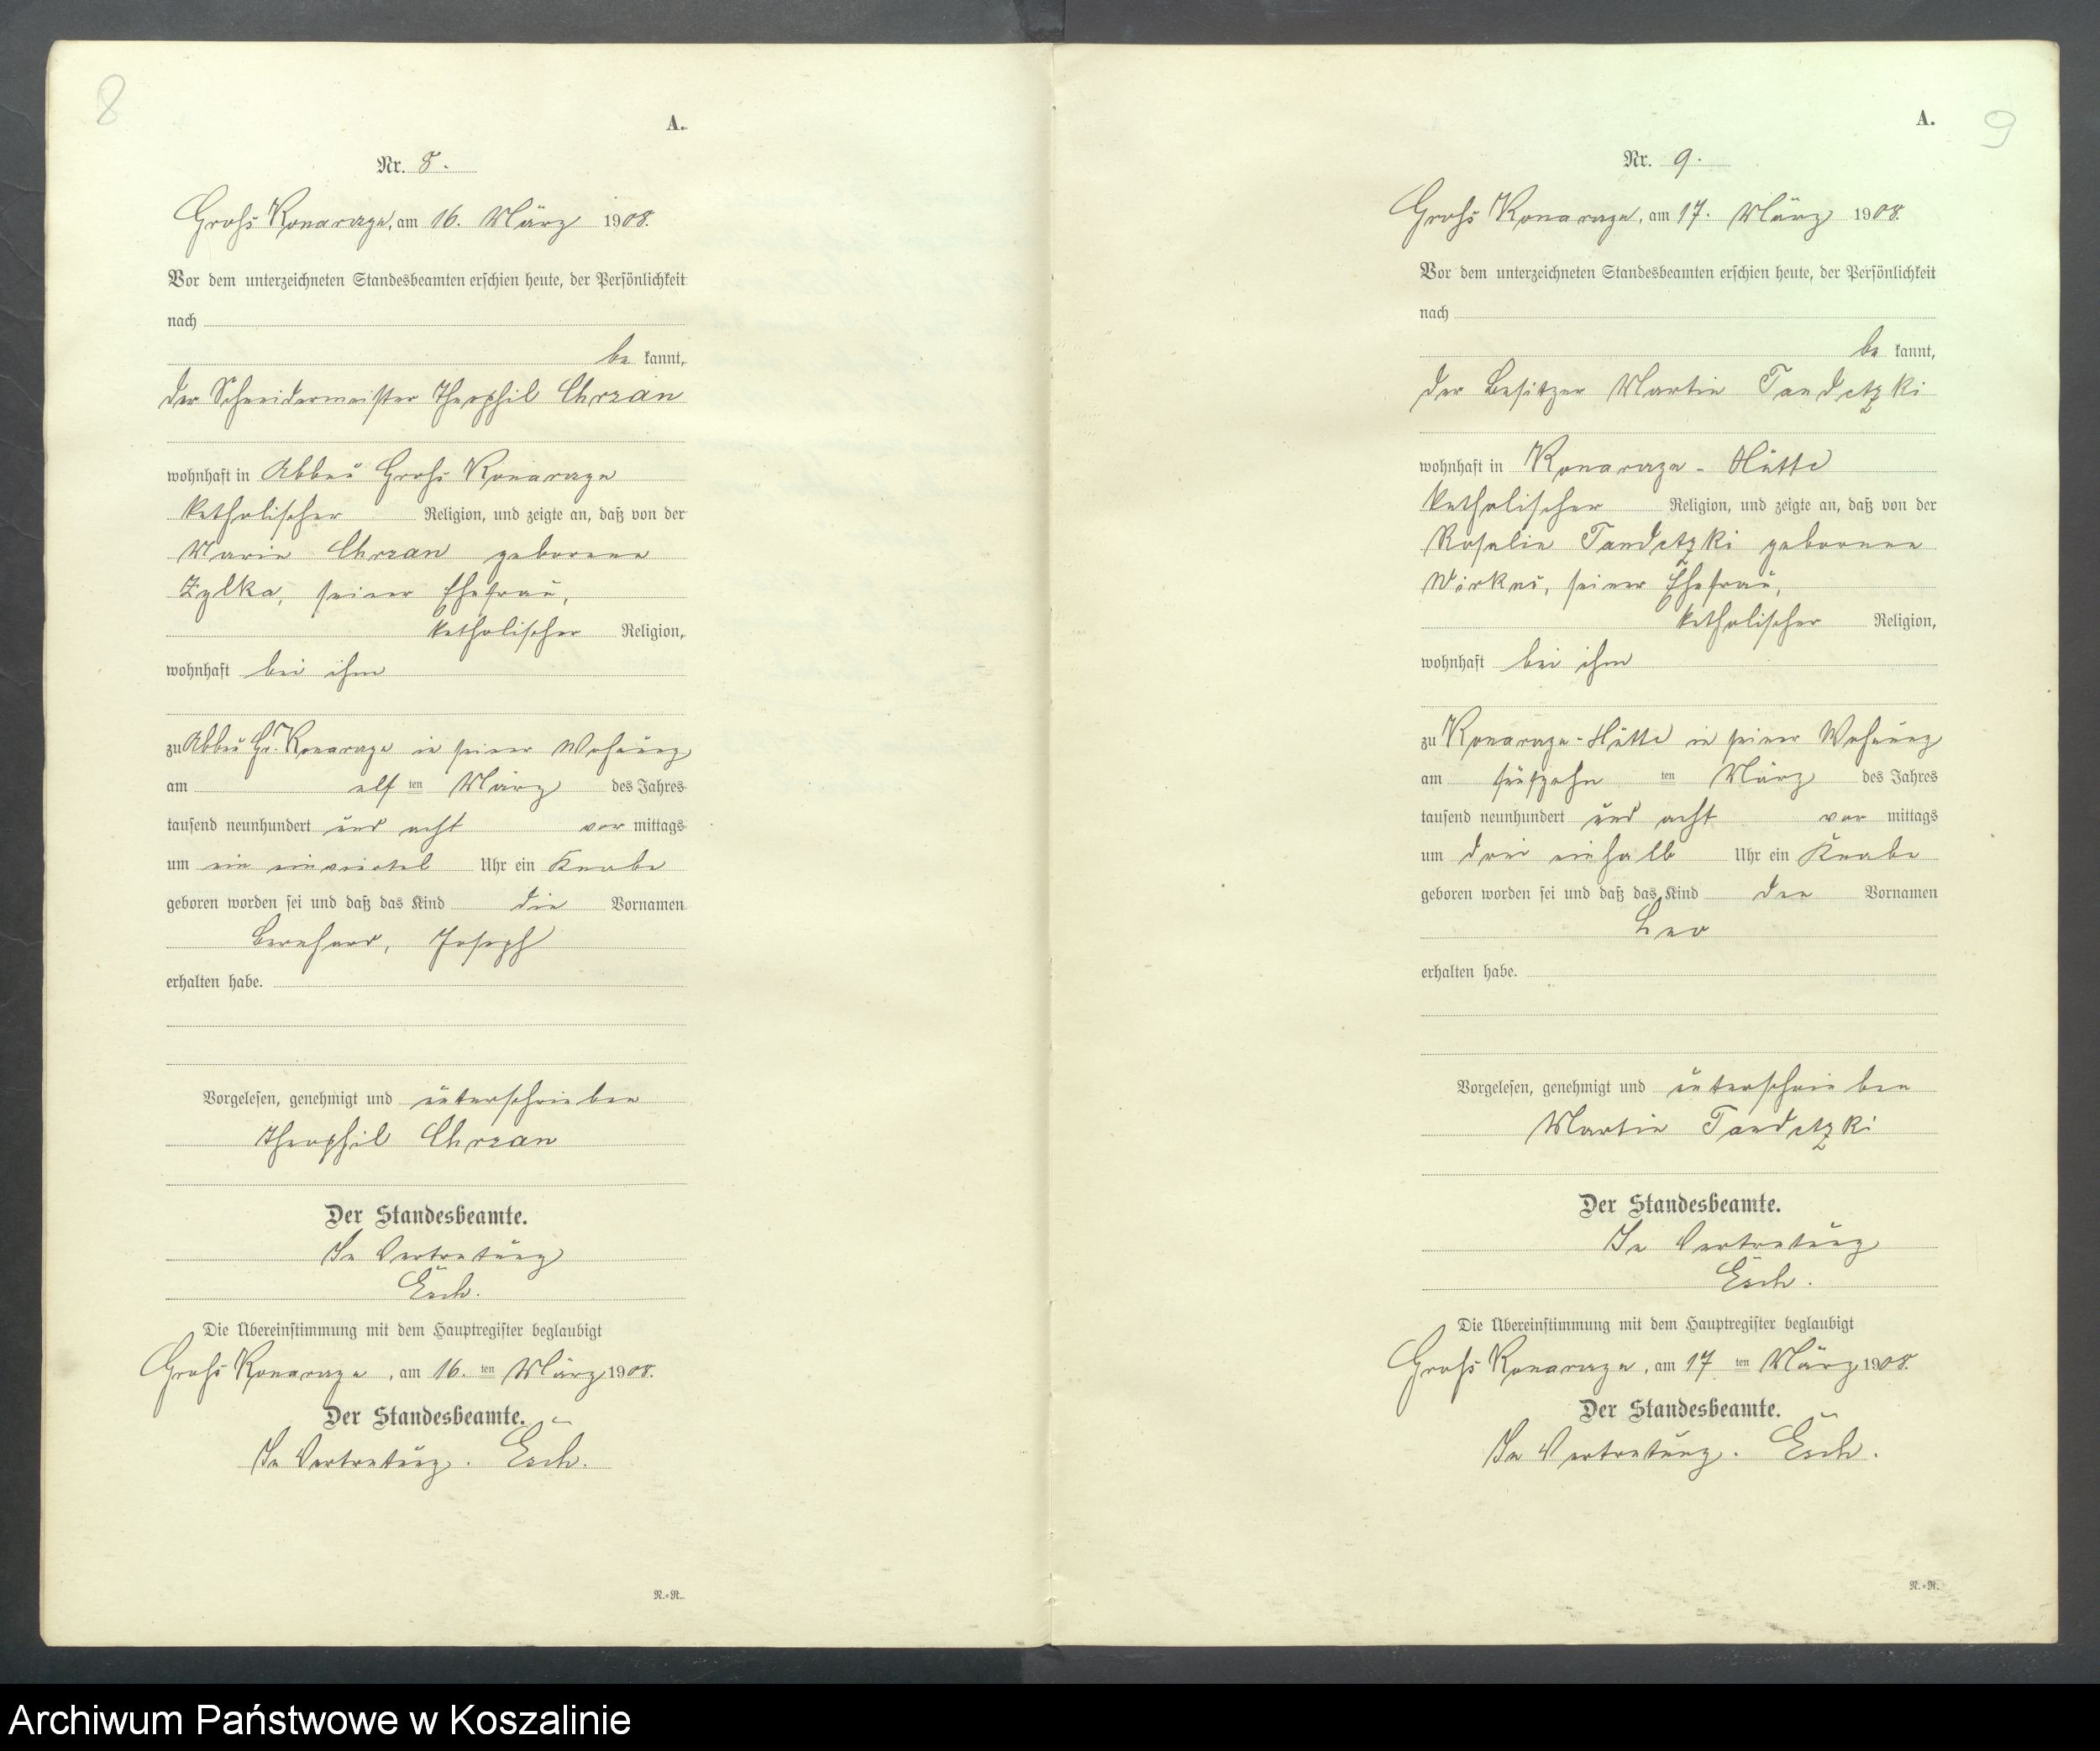 8
A.
Nr. 8.
Groß Konarzyn, am 16. März 1908.
Vor dem unterzeichneten Standesbeamten erschien heute, der Persönlichkeit
nach
be kannt,
der Schneidermeister Theophil Chrzan
wohnhaft in Abbau Groß Konarzyn
katholischer Religion, und zeigte an, daß von der
Marie Chrzan geborene
Zylka, seiner Ehefrau,
katholischer Religion,
wohnhaft bei ihm
zu Abbau Gr. Konarzyn in seiner Wohnung
am elf ten März des Jahres
tausend neunhundert und acht vor mittags
um ein einviertel Uhr ein Knabe
geboren worden sei und daß das Kind die Vornamen
Bernhard, Joseph
erhalten habe.
Vorgelesen, genehmigt und unterschrieben
Theophil Chrzan
Der Standesbeamte.
In Vertretung
Esch.
Die Übereinstimmung mit dem Hauptregister beglaubigt
Groß Konarzyn, am 16. ten März 1908.
Der Standesbeamte.
In Vertretung. Esch.
N.=R.
A.
9
Nr. 9.
Groß Konarzyn, am 17. März 1908.
Vor dem unterzeichneten Standesbeamten erschien heute, der Persönlichkeit
nach
be kannt,
der Besitzer Martin Tandetzki
wohnhaft in Konarzyn-Hütte
katholischer Religion, und zeigte an, daß von der
Rosalie Tandetzki geborenen
Wirkus, seiner Ehefrau,
katholischer Religion,
wohnhaft bei ihm
zu Konarzyn-Hütte in seiner Wohnung
am fünfzehn ten März des Jahres
tausend neunhundert und acht vor mittags
um drei einhalb Uhr ein Knabe
geboren worden sei und daß das Kind den Vornamen
Leo
erhalten habe.
Vorgelesen, genehmigt und unterschrieben
Martin Tandetzki
Der Standesbeamte.
In Vertretung
Esch.
Die Übereinstimmung mit dem Hauptregister beglaubigt
Groß Konarzyn, am 17 ten März 1908.
Der Standesbeamte.
In Vertretung. Esch.
N.=R.
Archiwum Państwowe w Koszalinie